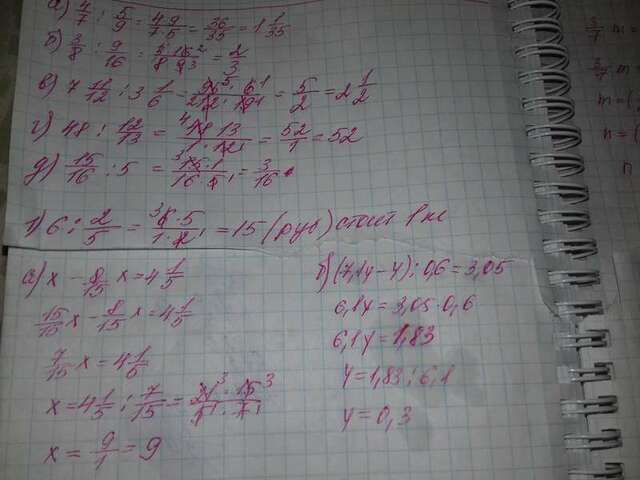 а) 4/7 : 5/9 = 4·9/7·5 = 36/35 = 1 1/35
б) 3/8 : 9/16 = 3·16²/8·9 3 = 2/3
в) 7 11/12 : 3 1/6 = 95⁵·6¹/2 12·19 1 = 5/2 = 2 1/2
г) 48 : 12/13 = ⁴48·13/1·12 1 = 52/1 = 52
д) 15/16 : 5 = ³15·1/16·5 1 = 3/16
1) 6 : 2/5 = ³6·5/1·2 1 = 15 (руб) стоит 1 кг
а) x - 8/15 x = 4 1/5
15/15 x - 8/15 x = 4 1/5
7/15 x = 4 1/5
x = 4 1/5 : 7/15 = 21³·15³/5 1·7 1
x = 9/1 = 9
б) (7,1y - y) : 0,6 = 3,05
6,1y = 3,05 · 0,6
6,1y = 1,83
y = 1,83 : 6,1
y = 0,3
3/7 m =
3/7 m =
m = (
n = (
n